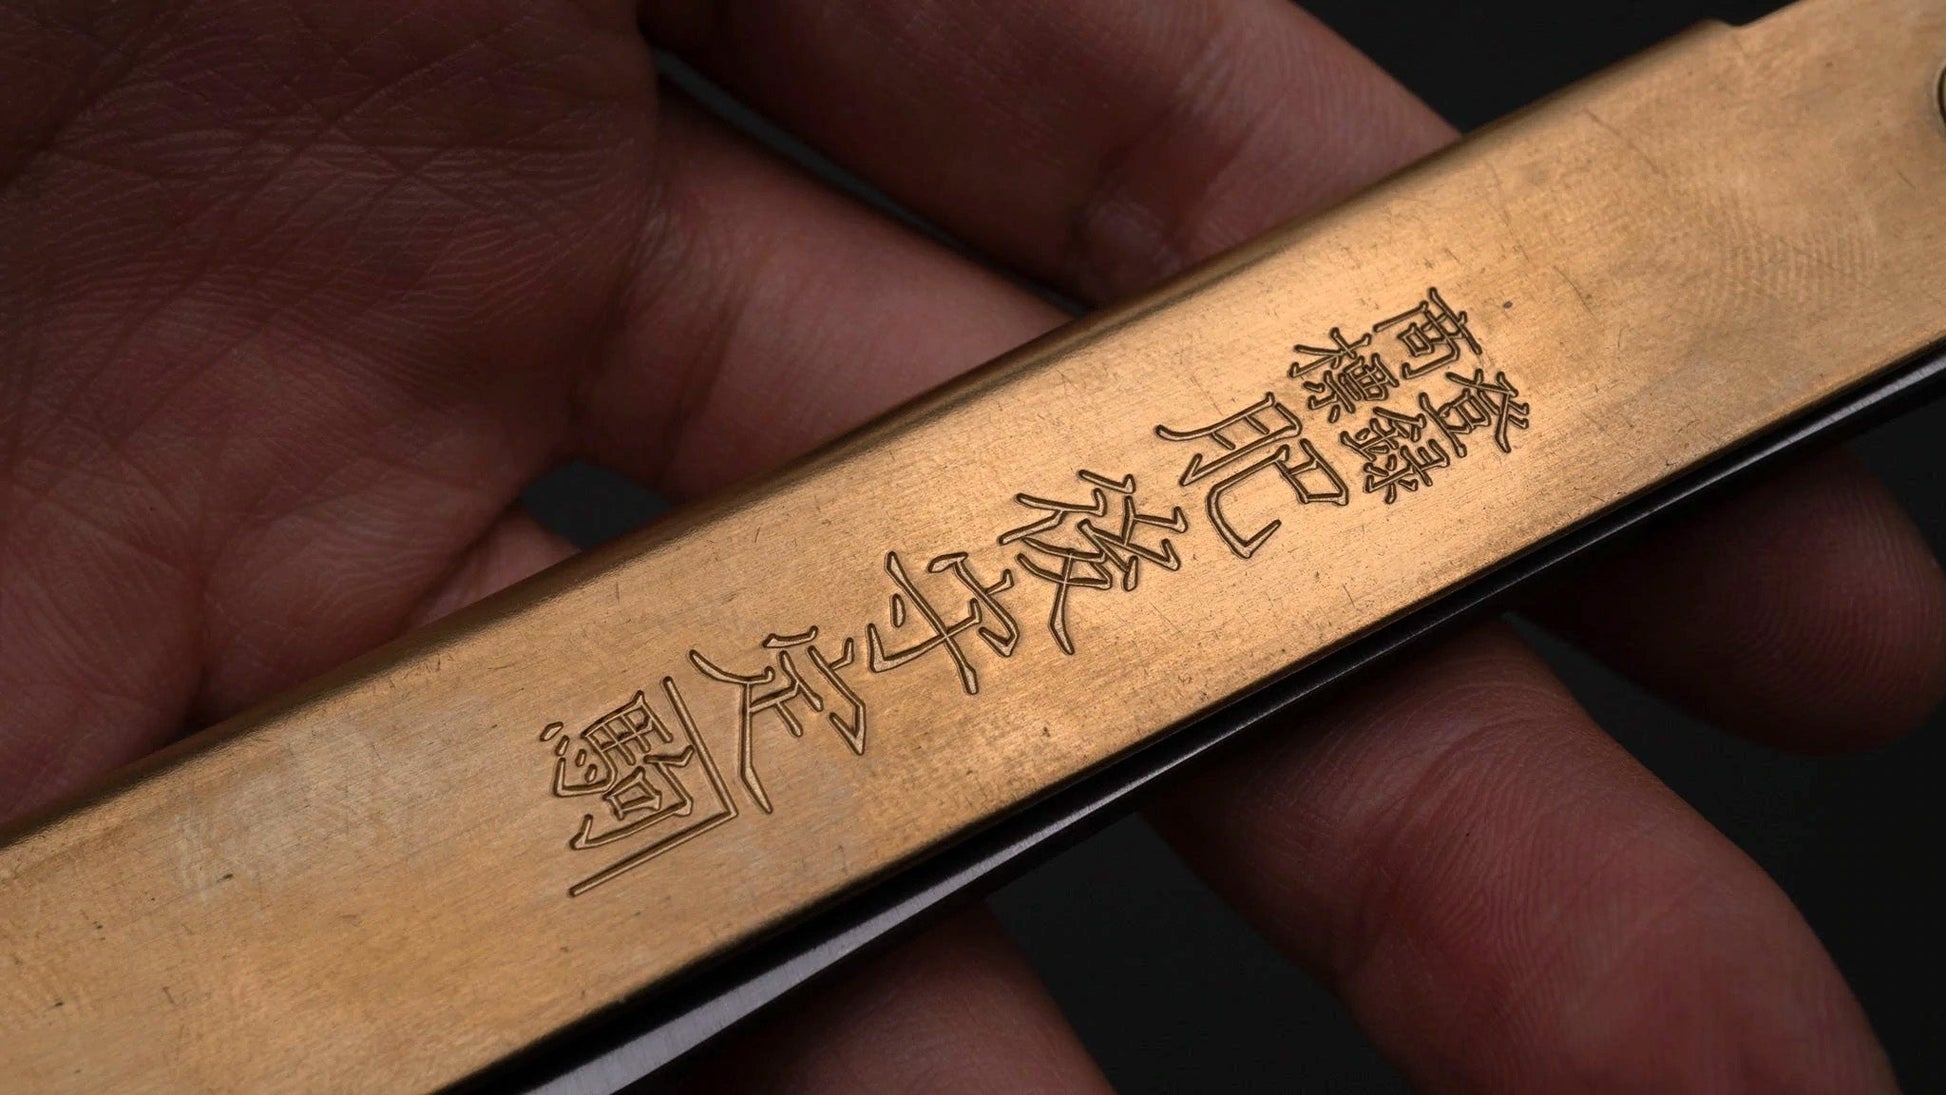 登録
商標
肥後守定
駒